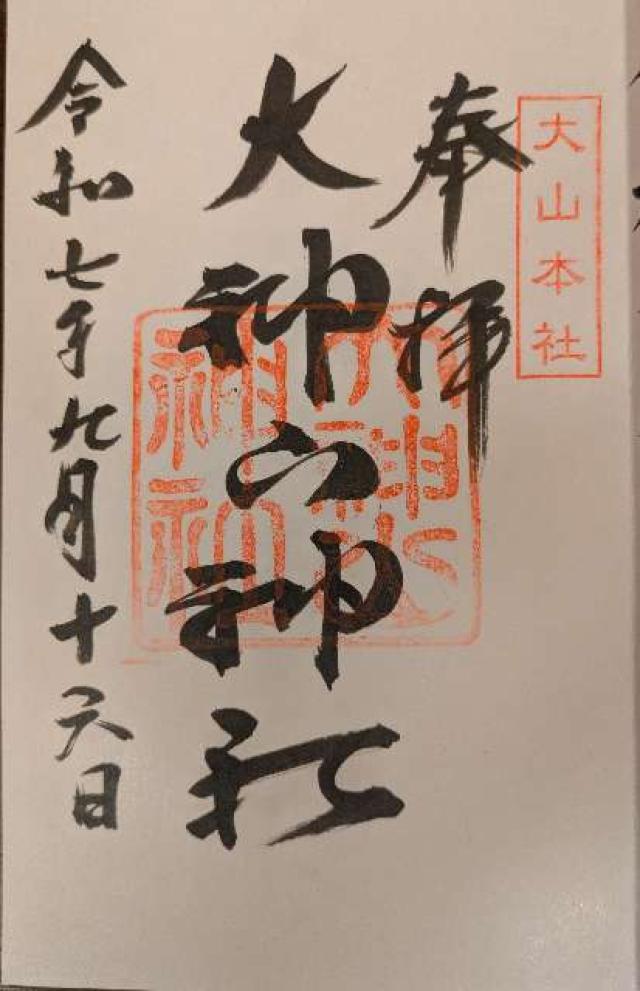 大山本社
奉拝
大神山神社
令和七年九月十六日